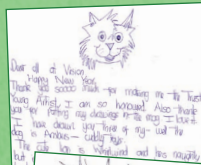 Dear all at Vision
Happy New Year
Thank you soooo much for making me the Trust
Young Artist. I am so honoured! Also thank
you for putting my drawings in the mag. I love it
I have drawn you three of my - well the
dog is Annabels - cuddly toys
The cute lion is Whirlwind and he's naughty
but